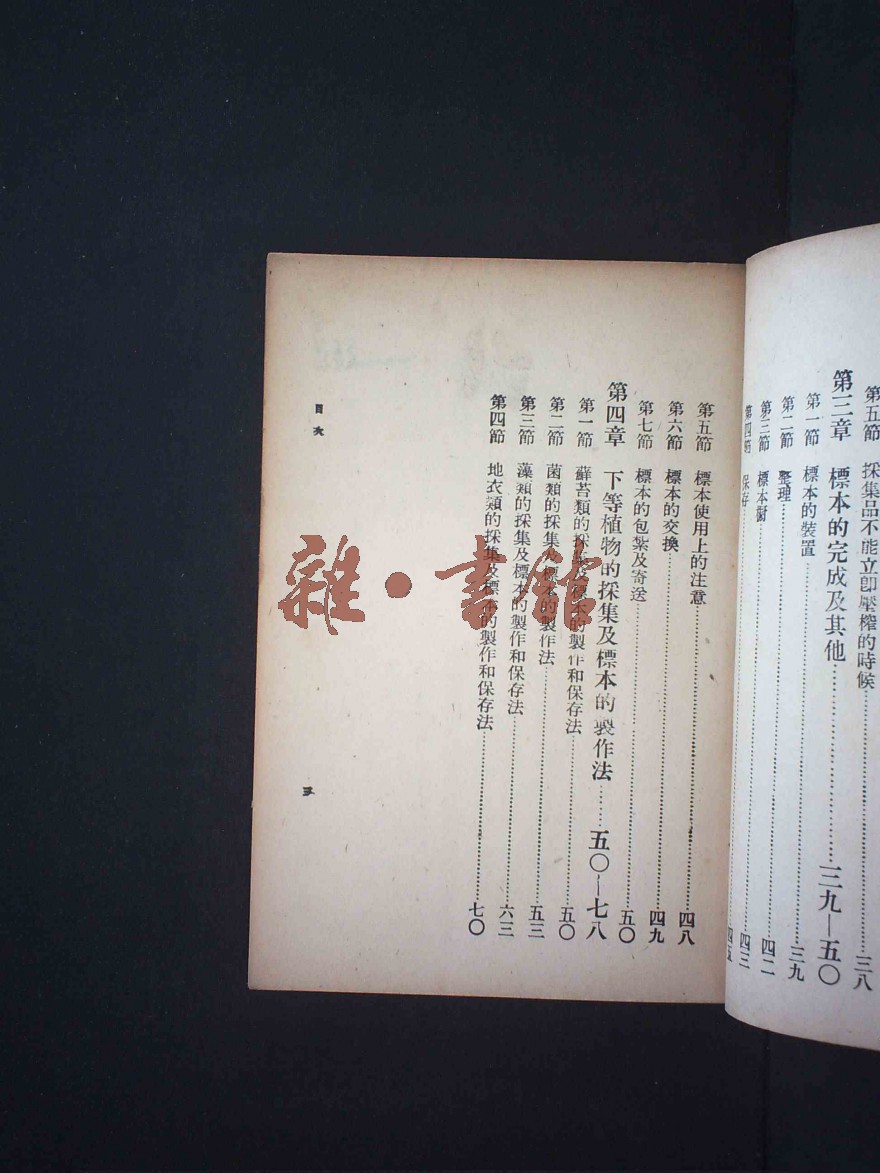 第五節　採集品不能立卽壓榨的時候……三八
第三章　標本的完成及其他……三九—五〇
第一節　標本的裝置……三九
第二節　整理……四二
第三節　標本櫥……四三
第四節　保存……四五
第五節　標本使用上的注意……四八
第六節　標本的交換……四九
第七節　標本的包紮及寄送……五〇
第四章　下等植物的採集及標本的製作法……五〇—七八
第一節　蘚苔類的採集及標本的製作和保存法……五〇
第二節　菌類的採集及標本的製作法……五三
第三節　藻類的採集及標本的製作和保存法……六三
第四節　地衣類的採集及標本的製作和保存法……七〇
目次
三
雜·書館